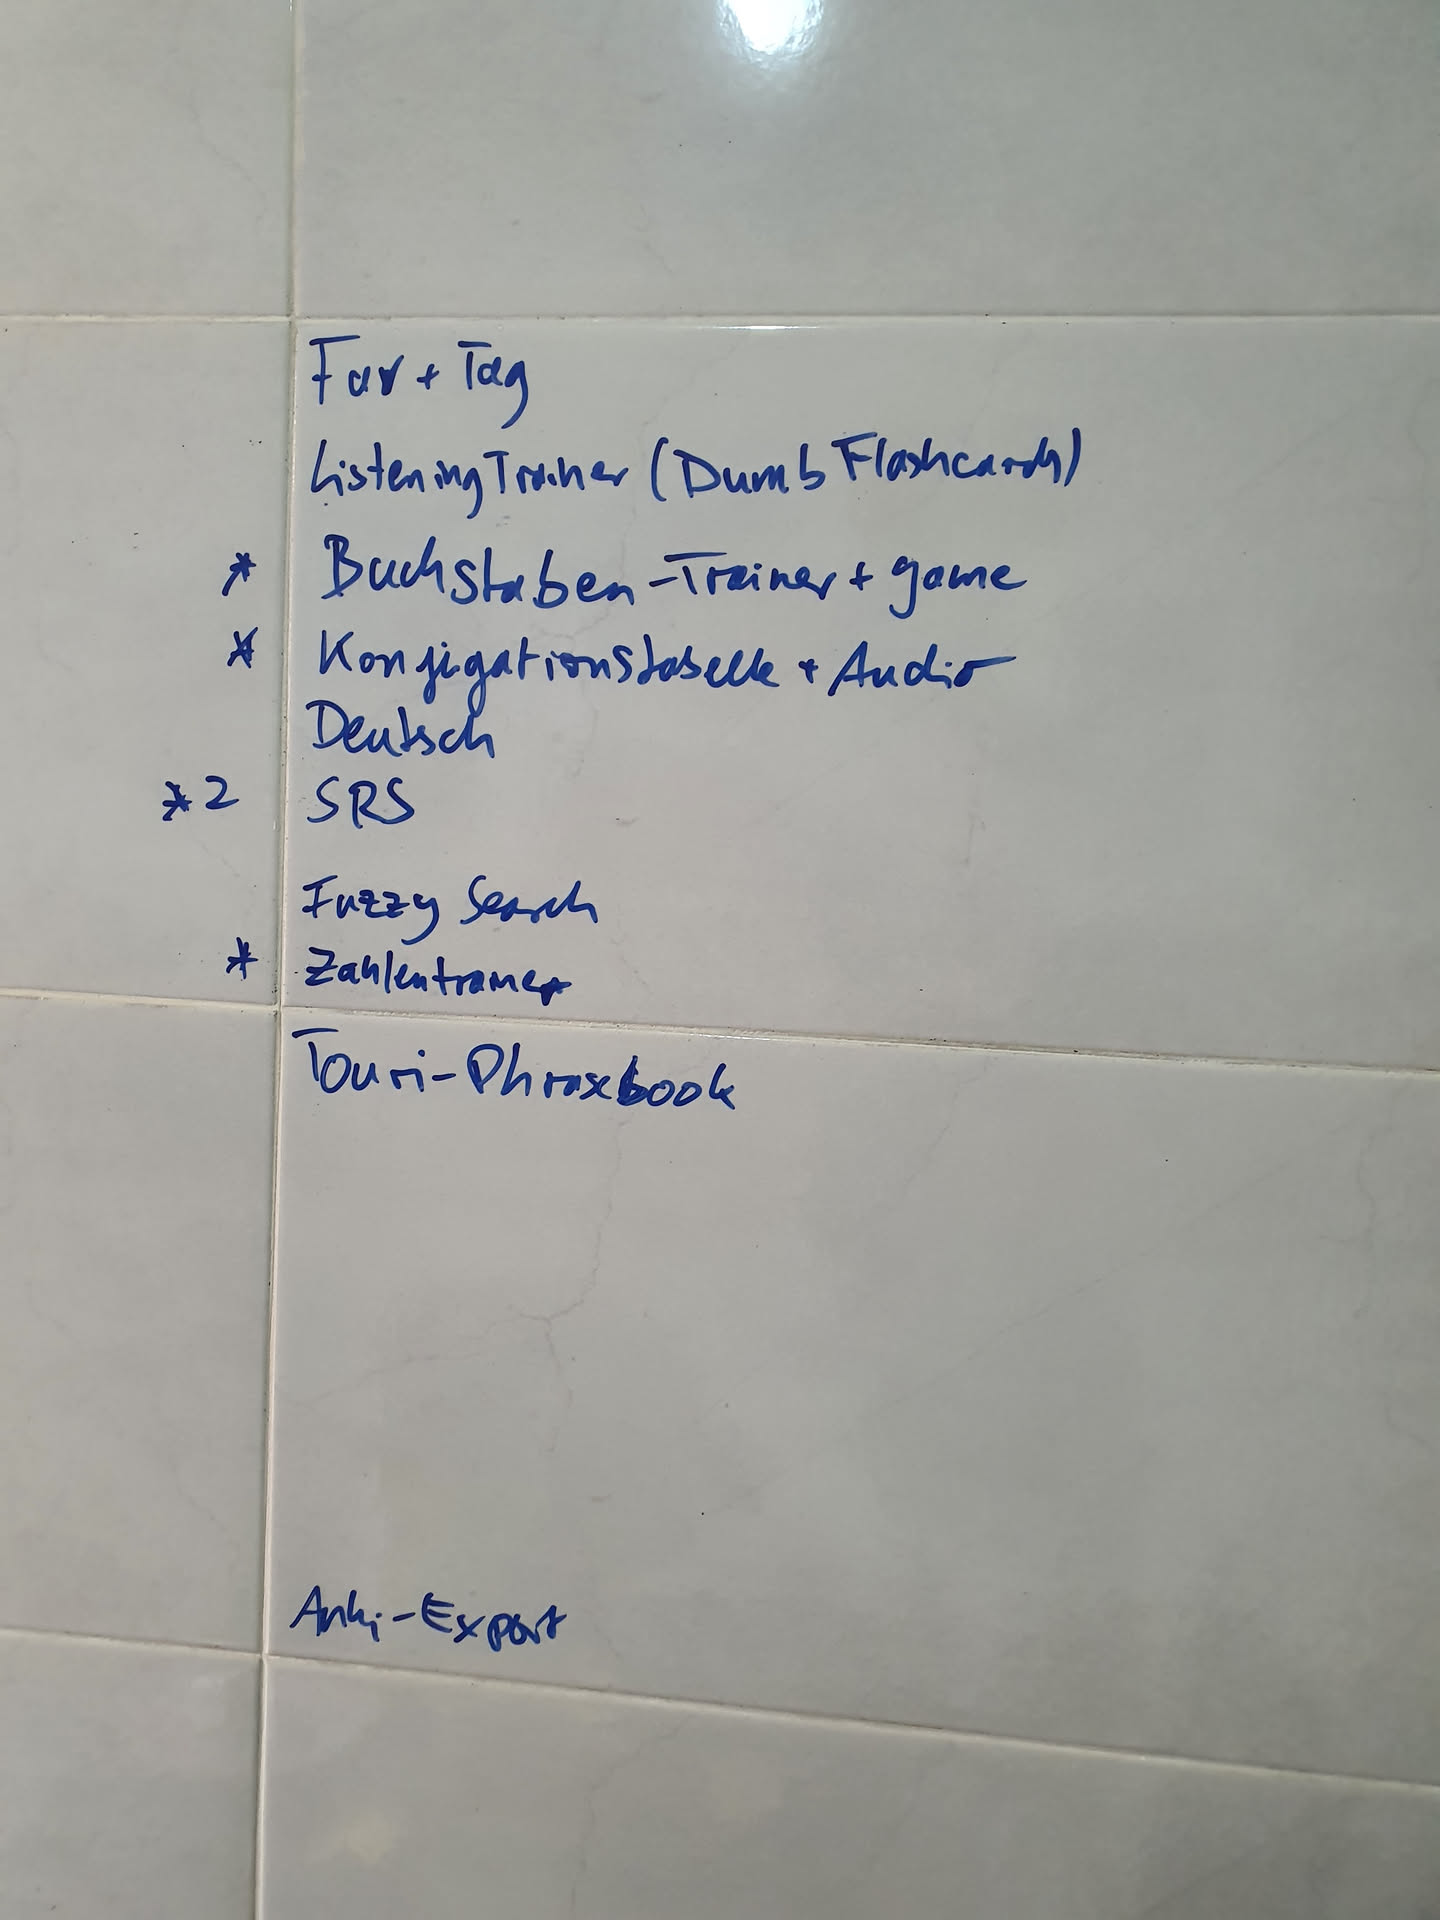 Fav + Tag
Listening Trainer (Dumb Flashcards)
* Buchstaben-Trainer + game
* Konjigationstabelle + Audio
Deutsch
*2 SRS
Fuzzy Search
* Zahlentrainer
Touri-Phrasebook
Anki-Export